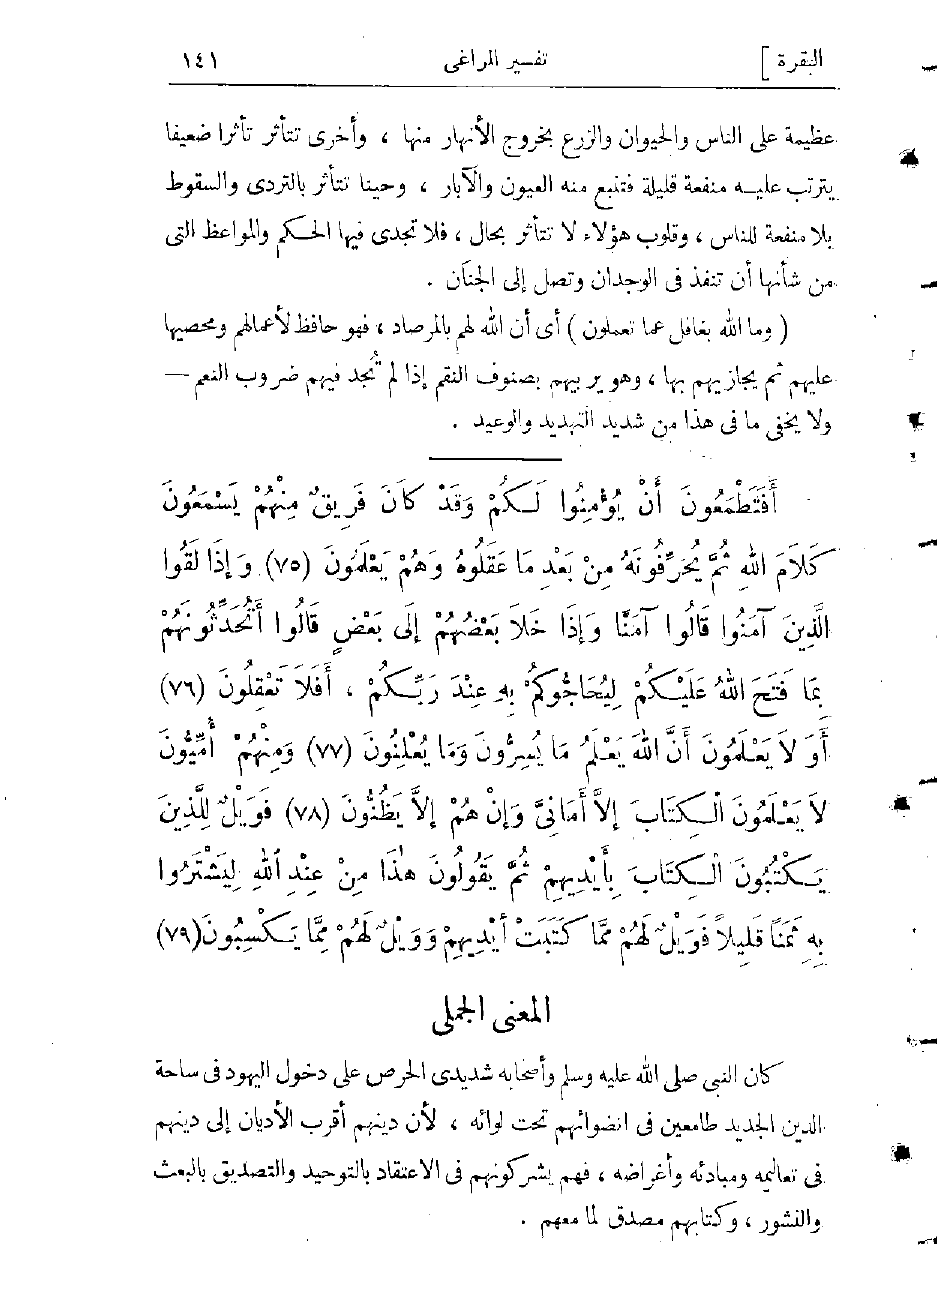 البقرة ] تفسير المراغى ١٤١
عظيمة على الناس والحيوان والزرع بخروج الأنهار منها ، وأخرى تتأثر تأثرا ضعيفا
يترتب عليه منفعة قليلة فتنبع منه العيون والآبار ، وحينا تتأثر بالتردى والسقوط
بلا منفعة للناس ، وقلوب هؤلاء لا تتأثر بحال ، فلا تجدى فيها الحكم والمواعظ التى
من شأنها أن تنفذ فى الوجدان وتصل إلى الجنان .
( وما الله بغافل عما تعملون ) أى أن الله لهم بالمرصاد ، فهو حافظ لأعمالهم ومحصيها
عليهم ثم يجازيهم بها ، وهو يربيهم بصنوف النقم إذا لم تُجد فيهم ضروب النعم —
ولا يخفى ما فى هذا من شديد التهديد والوعيد .
أَفَتَطْمَعُونَ أَنْ يُؤْمِنُوا لَكُمْ وَقَدْ كَانَ فَرِيقٌ مِنْهُمْ يَسْمَعُونَ
كَلَامَ اللهِ ثُمَّ يُحَرِّفُونَهُ مِنْ بَعْدِ مَا عَقَلُوهُ وَهُمْ يَعْلَمُونَ (٧٥) وَإِذَا لَقُوا
الَّذِينَ آمَنُوا قَالُوا آمَنَّا وَإِذَا خَلَا بَعْضُهُمْ إِلَى بَعْضٍ قَالُوا أَتُحَدِّثُونَهُمْ
بِمَا فَتَحَ اللهُ عَلَيْكُمْ لِيُحَاجُّوكُمْ بِهِ عِنْدَ رَبِّكُمْ ، أَفَلَا تَعْقِلُونَ (٧٦)
أَوَ لَا يَعْلَمُونَ أَنَّ اللهَ يَعْلَمُ مَا يُسِرُّونَ وَمَا يُعْلِنُونَ (٧٧) وَمِنْهُمْ أُمِّيُّونَ
لَا يَعْلَمُونَ الْكِتَابَ إِلاَّ أَمَانِىَّ وَإِنْ هُمْ إِلاَّ يَظُنُّونَ (٧٨) فَوَيْلٌ لِلَّذِينَ
يَكْتُبُونَ الْكِتَابَ بِأَيْدِيهِمْ ثُمَّ يَقُولُونَ هٰذَا مِنْ عِنْدِ اللهِ لِيَشْتَرُوا
بِهِ ثَمَنًا قَلِيلاً فَوَيْلٌ لَهُمْ مِمَّا كَتَبَتْ أَيْدِيهِمْ وَوَيْلٌ لَهُمْ مِمَّا يَكْسِبُونَ (٧٩)
المعنى الجملى
كان النبى صلى الله عليه وسلم وأصحابه شديدى الحرص على دخول اليهود فى ساحة
الدين الجديد طامعين فى انضوائهم تحت لوائه ، لأن دينهم أقرب الأديان إلى دينهم
فى تعاليمه ومبادئه وأغراضه ، فهم يشركونهم فى الاعتقاد بالتوحيد والتصديق بالبعث
والنشور ، وكتابهم مصدق لما معهم .